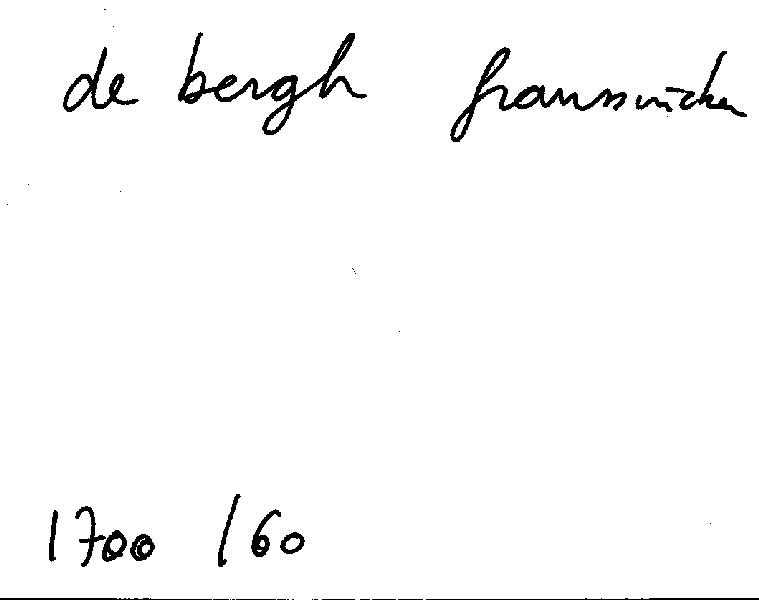 de bergh fransswicken
1700 /60